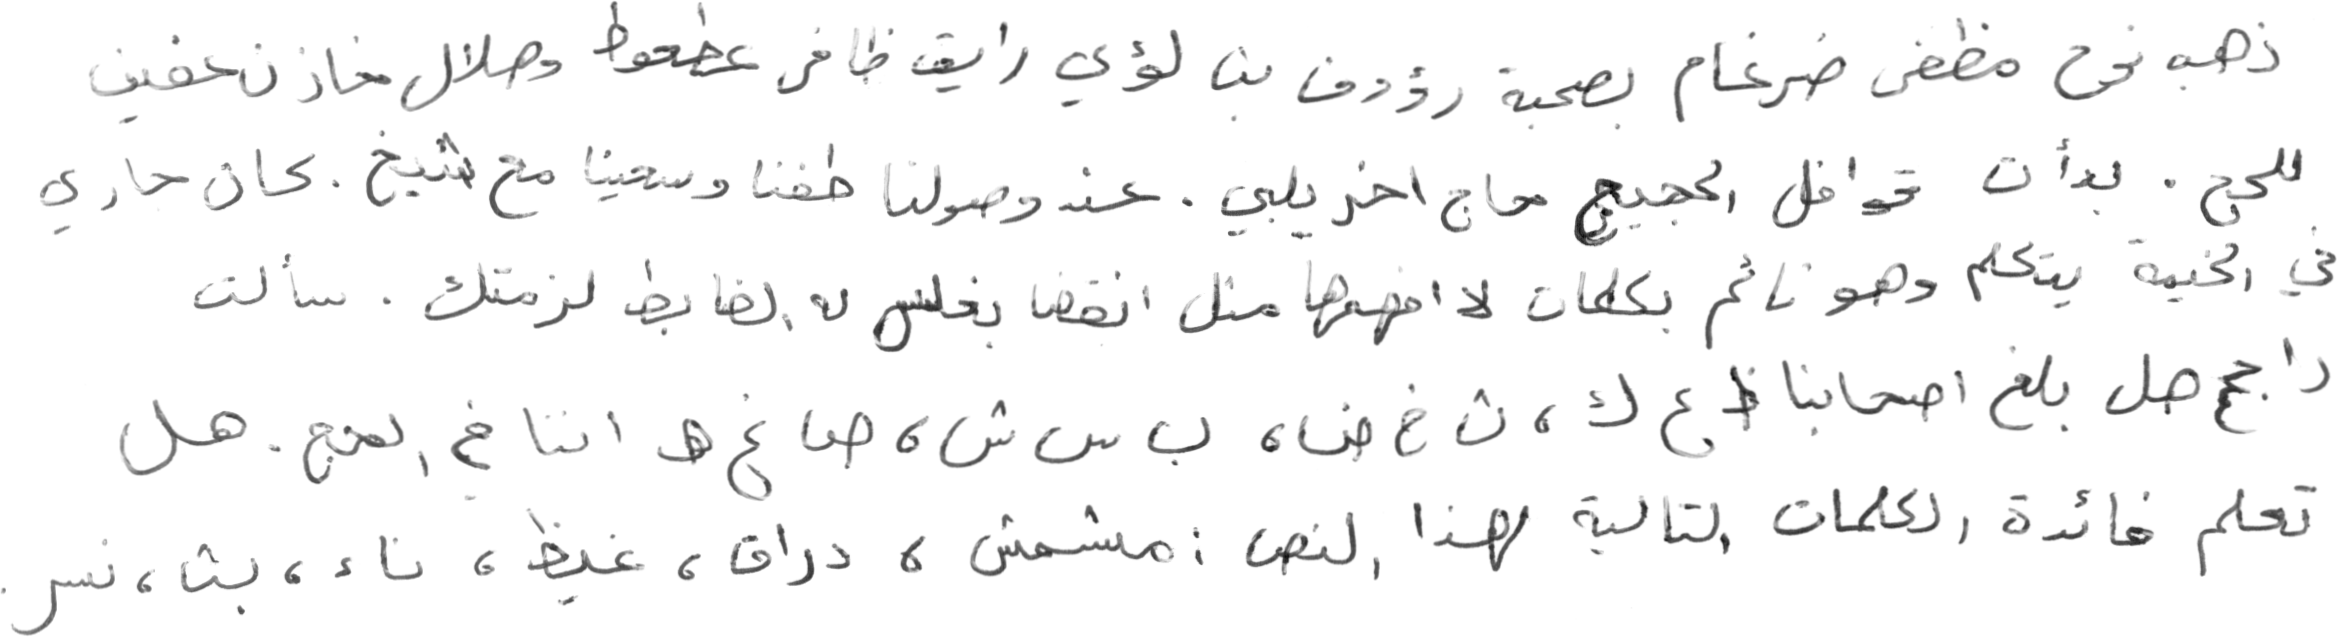 ذهب نوح مظفر ضرغام بصحبة رؤوف بن لؤي رايق ظافر عطعوط وهلال مخازن عفيف
للحج . بدأت قوافل الحجيج محاج اخذ يلبي . عند وصولنا طفنا وسعينا مع شيخ . كان جاري
في الخيمة يتكلم وهو نائم بكلمات لا افهمها مثل انقضا بغلس لا الضابط لزمتك . سألت
راجح هل بلغ اصحابنا ظ ع ك ، ث غ ض ، ب س ش ، ص غ ه اننا في الحج . هل
تعلم فائدة الكلمات التالية لهذا النص : مشمش ، دراق ، غيظ ، ناء ، بث ، نسر .